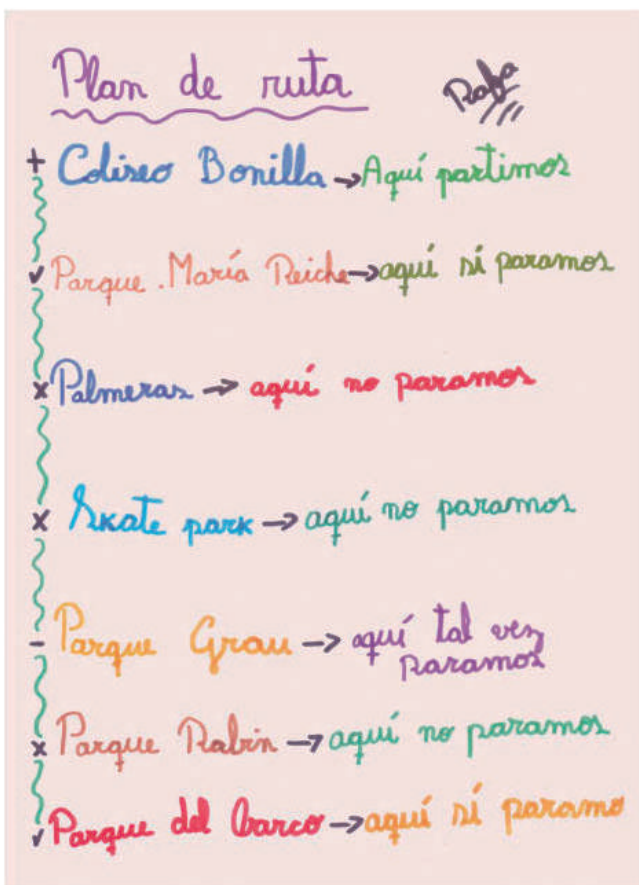 Plan de ruta
Rafa
+ Coliseo Bonilla → Aquí partimos
✓ Parque . María Reiche → aquí sí paramos
x Palmeras → aquí no paramos
x Skate park → aquí no paramos
- Parque Grau → aquí tal vez
paramos
x Parque Rabin → aquí no paramos
✓ Parque del barco → aquí sí paramo